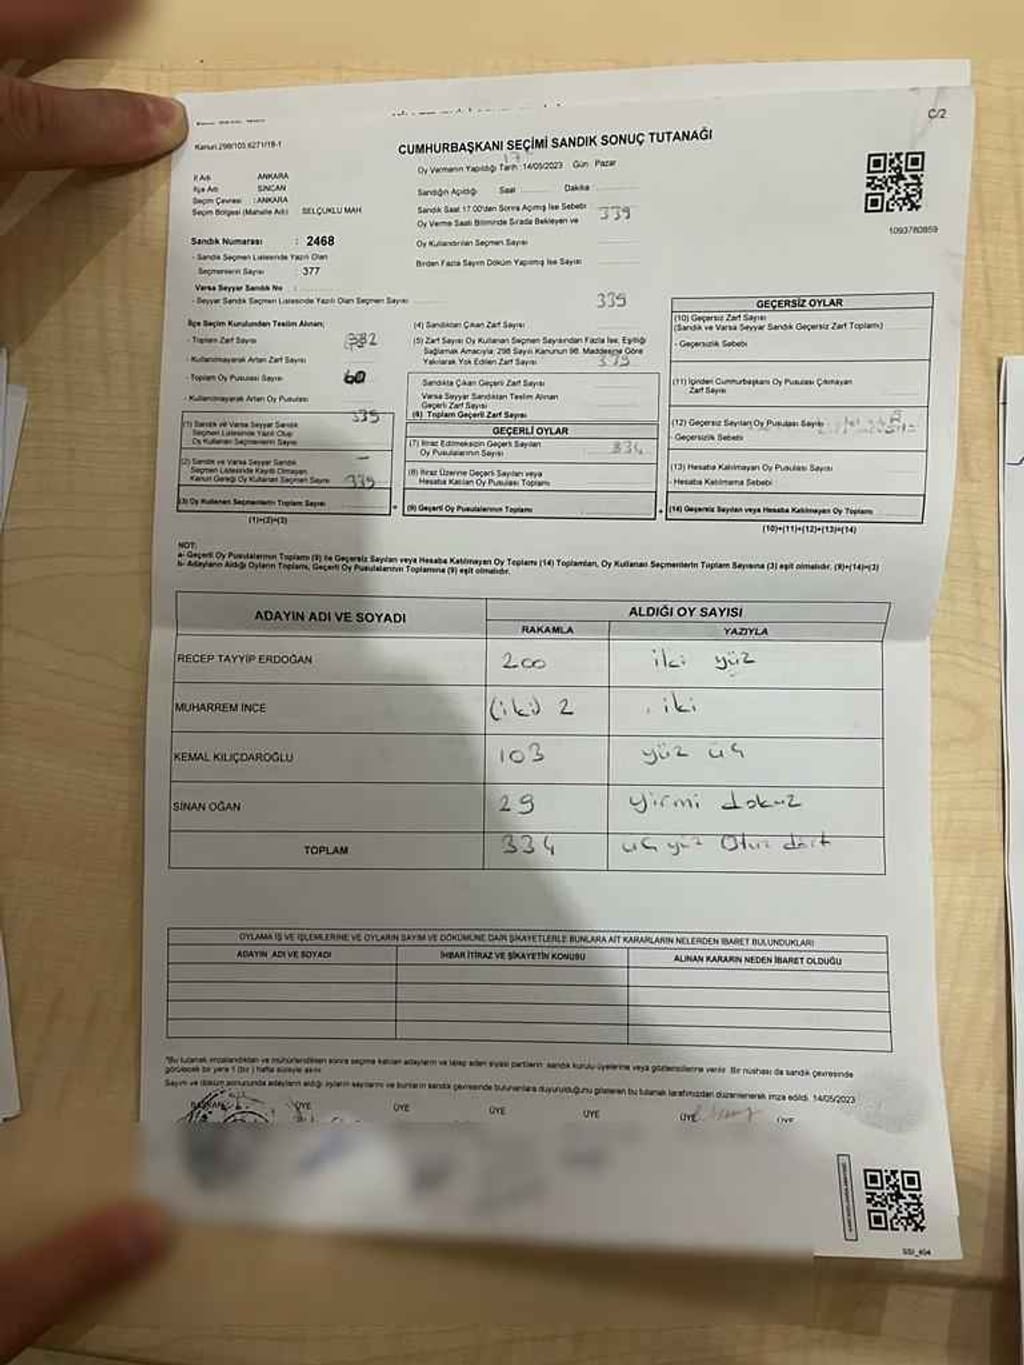 C/2
Kanun 298/105,6271/18-1
CUMHURBAŞKANI SEÇİMİ SANDIK SONUÇ TUTANAĞI
Oy Vermenin Yapıldığı Tarih :14/05/2023 Gün : Pazar
İl Adı : ANKARA
İlçe Adı : SİNCAN
Seçim Çevresi : ANKARA
Seçim Bölgesi (Mahalle Adı) : SELÇUKLU MAH
Sandığın Açıldığı Saat Dakika
Sandık Saat 17.00'den Sonra Açılmış İse Sebebi
Oy Verme Saati Bitiminde Sırada Bekleyen ve 339
Oy Kullandırılan Seçmen Sayısı
Birden Fazla Sayım Döküm Yapılmış İse Sayısı
1093780859
Sandık Numarası : 2468
- Sandık Seçmen Listesinde Yazılı Olan
Seçmenlerin Sayısı : 377
Varsa Seyyar Sandık No :
- Seyyar Sandık Seçmen Listesinde Yazılı Olan Seçmen Sayısı
339
İlçe Seçim Kurulundan Teslim Alınan;
- Toplam Zarf Sayısı
- Kullanılmayarak Artan Zarf Sayısı
- Toplam Oy Pusulası Sayısı
- Kullanılmayarak Artan Oy Pusulası
339
(1) Sandık ve Varsa Seyyar Sandık
Seçmen Listesinde Yazılı Olup
Oy Kullanan Seçmenlerin Sayısı
(2) Sandık ve Varsa Seyyar Sandık
Seçmen Listesinde Kayıtlı Olmayan
Kanun Gereği Oy Kullanan Seçmen Sayısı 339
(3) Oy Kullanan Seçmenlerin Toplam Sayısı
(1)+(2)=(3)
(4) Sandıktan Çıkan Zarf Sayısı
(5) Zarf Sayısı Oy Kullanan Seçmen Sayısından Fazla İse, Eşitliği
Sağlamak Amacıyla; 298 Sayılı Kanunun 98. Maddesine Göre
Yakılarak Yok Edilen Zarf Sayısı 339
Sandıkta Çıkan Geçerli Zarf Sayısı
Varsa Seyyar Sandıktan Teslim Alınan
Geçerli Zarf Sayısı
(6) Toplam Geçerli Zarf Sayısı
GEÇERLİ OYLAR
(7) İtiraz Edilmeksizin Geçerli Sayılan
Oy Pusulalarının Sayısı 334
(8) İtiraz Üzerine Geçerli Sayılan veya
Hesaba Katılan Oy Pusulası Toplamı
(9) Geçerli Oy Pusulalarının Toplamı
GEÇERSİZ OYLAR
(10) Geçersiz Zarf Sayısı
(Sandık ve Varsa Seyyar Sandık Geçersiz Zarf Toplamı)
- Geçersizlik Sebebi
(11) İçinden Cumhurbaşkanı Oy Pusulası Çıkmayan
Zarf Sayısı
(12) Geçersiz Sayılan Oy Pusulası Sayısı
- Geçersizlik Sebebi
(13) Hesaba Katılmayan Oy Pusulası Sayısı
- Hesaba Katılmama Sebebi
(14) Geçersiz Sayılan veya Hesaba Katılmayan Oy Toplamı
(10)+(11)+(12)+(13)=(14)
NOT:
a- Geçerli Oy Pusulalarının Toplamı (9) ile Geçersiz Sayılan veya Hesaba Katılmayan Oy Toplamı (14) Toplamları, Oy Kullanan Seçmenlerin Toplam Sayısına (3) eşit olmalıdır. (9)+(14)=(3)
b- Adayların Aldığı Oyların Toplamı, Geçerli Oy Pusulalarının Toplamına (9) eşit olmalıdır.
ADAYIN ADI VE SOYADI ALDIĞI OY SAYISI
RAKAMLA YAZIYLA
RECEP TAYYİP ERDOĞAN 200 iki yüz
MUHARREM İNCE (iki) 2 iki
KEMAL KILIÇDAROĞLU 103 yüz üç
SİNAN OĞAN 29 yirmi dokuz
TOPLAM 334 üç yüz Otuz dört
OYLAMA İŞ VE İŞLEMLERİNE VE OYLARIN SAYIM VE DÖKÜMÜNE DAİR ŞİKAYETLERLE BUNLARA AİT KARARLARIN NELERDEN İBARET BULUNDUKLARI
ADAYIN ADI VE SOYADI İHBAR İTİRAZ VE ŞİKAYETİN KONUSU ALINAN KARARIN NEDEN İBARET OLDUĞU
*Bu tutanak imzalandıktan ve mühürlendikten sonra seçime katılan adayların ve talep eden siyasi partilerin sandık kurulu üyelerine veya gözlemcilerine verilir. Bir nüshası da sandık çevresinde
görülecek bir yere 1 (bir) hafta süreyle asılır.
Sayım ve döküm sonucunda adayların aldığı oyların sayılarını ve bunların sandık çevresinde bulunanlara duyurulduğunu gösteren bu tutanak tarafımızdan düzenlenerek imza edildi. 14/05/2023
BAŞKAN ÜYE ÜYE ÜYE ÜYE ÜYE ÜYE